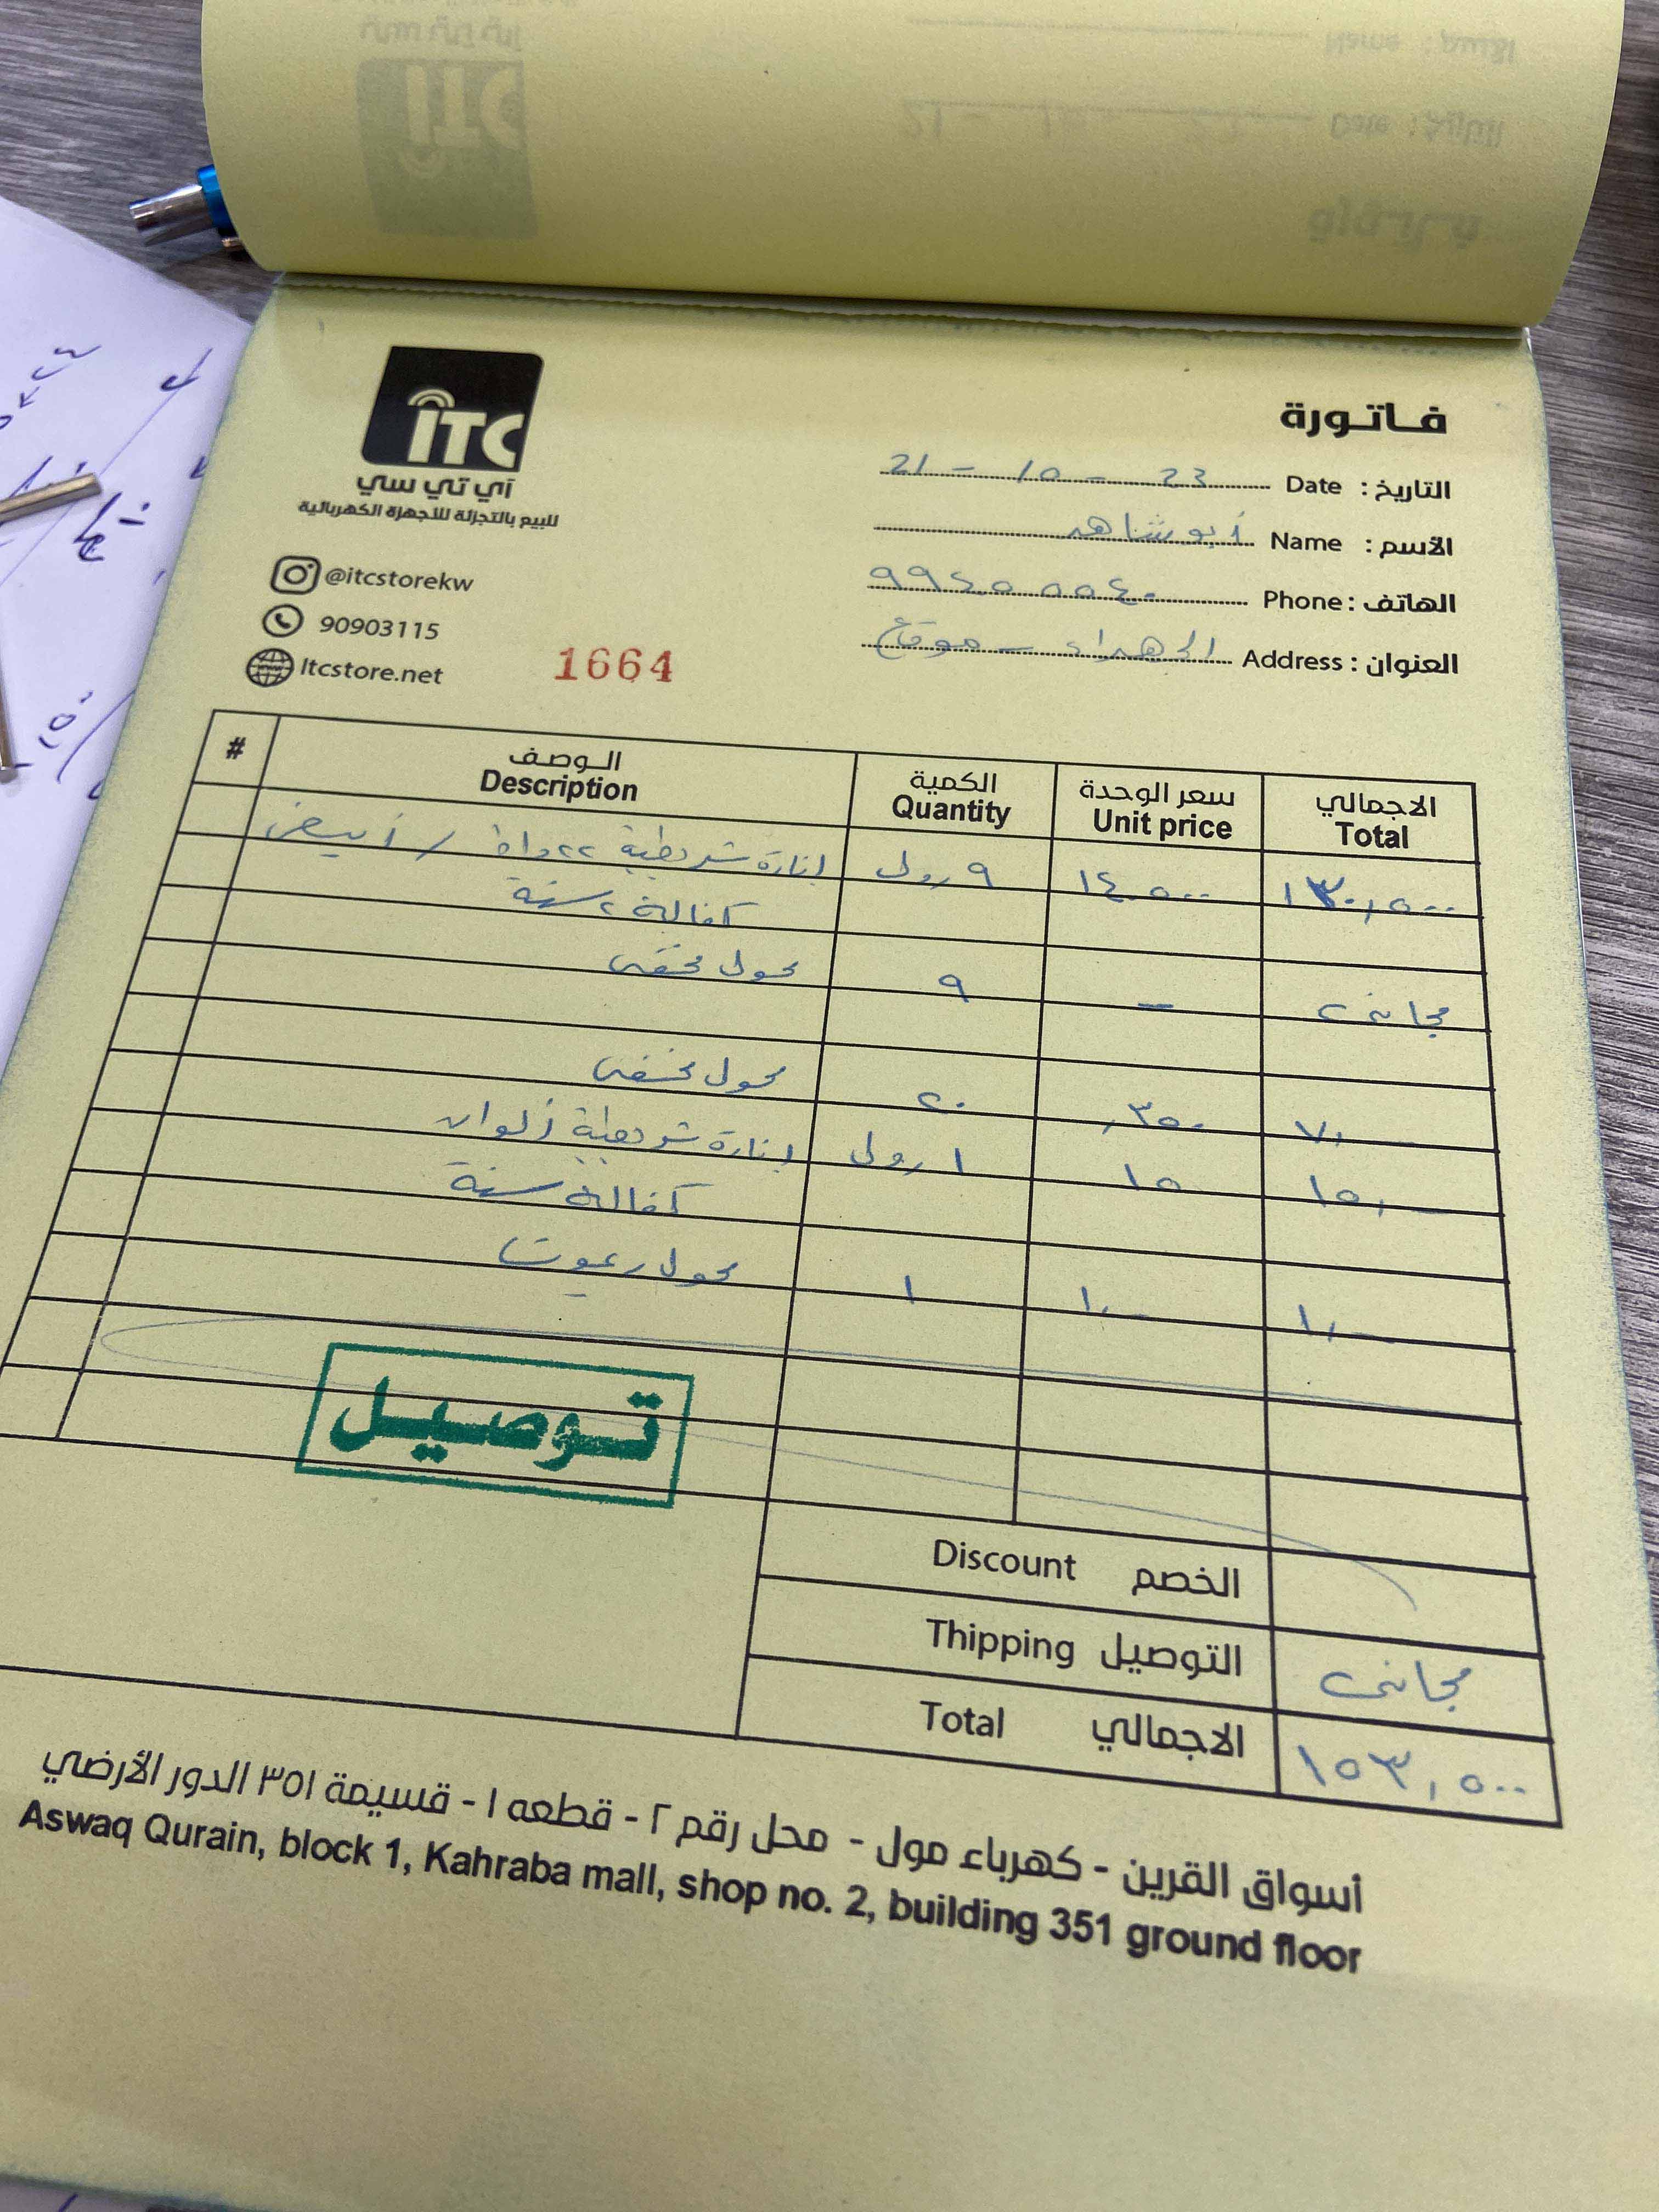 ITC
آي تي سي
للبيع بالتجزئة للأجهزة الكهربائية
@itcstorekw
90903115
Itcstore.net
1664
فاتورة
التاريخ: Date 21 - 10 - 23
الأسم: Name أبو شاهر
الهاتف: Phone
العنوان: Address الجهراء - موقع
# الوصف Description الكمية Quantity سعر الوحدة Unit price الاجمالي Total
إنارة شريطية ٢٢ واة / أبيض ٩ رول ١٤,٥٠٠ ١٣٠,٥٠٠
كفالة ٢ سنة
محول مخفي ٩ - مجاني
محول مخفي ٢٠ ,٣٥٠ ٧,
إنارة شريطية ألوان ١ رول ١٥ ١٥,
كفالة سنة
محول ريموت ١ ١, ١,
توصيل
Discount الخصم
Thipping التوصيل مجاني
Total الاجمالي ١٥٣,٥٠٠
أسواق القرين - كهرباء مول - محل رقم ٢ - قطعه ١ - قسيمة ٣٥١ الدور الأرضي
Aswaq Qurain, block 1, Kahraba mall, shop no. 2, building 351 ground floor